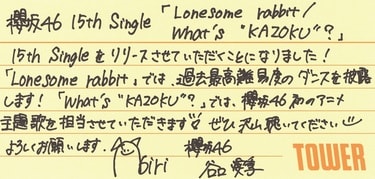 櫻坂46 15th Single「Lonesome rabbit/
What's "KAZOKU"?」
15th Singleをリリースさせていただくことになりました!
「Lonesome rabbit」では、過去最高難易度のダンスを披露
します!「What's "KAZOKU"?」では、櫻坂46初のアニメ
主題歌を担当させていただきます♡ ぜひ沢山聴いてください
よろしくお願いします. airi 櫻坂46
谷口愛季
TOWER